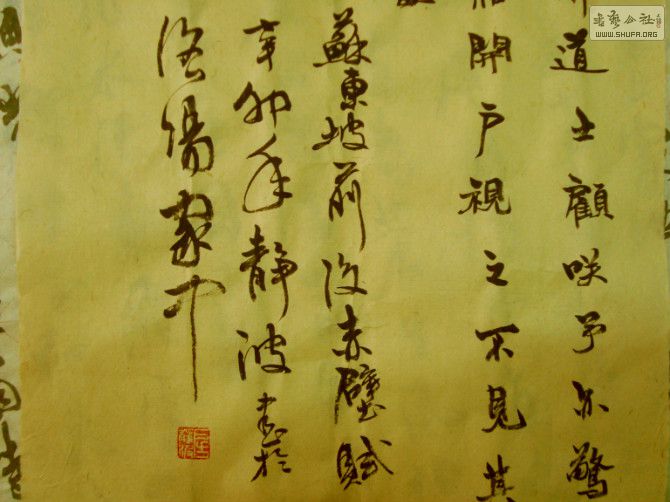 道士顧咲予亦驚
開户視之不見其
蘇東坡前後赤壁賦
辛卯年靜波書於
洛陽家中
書藝公社
WWW.SHUFA.ORG